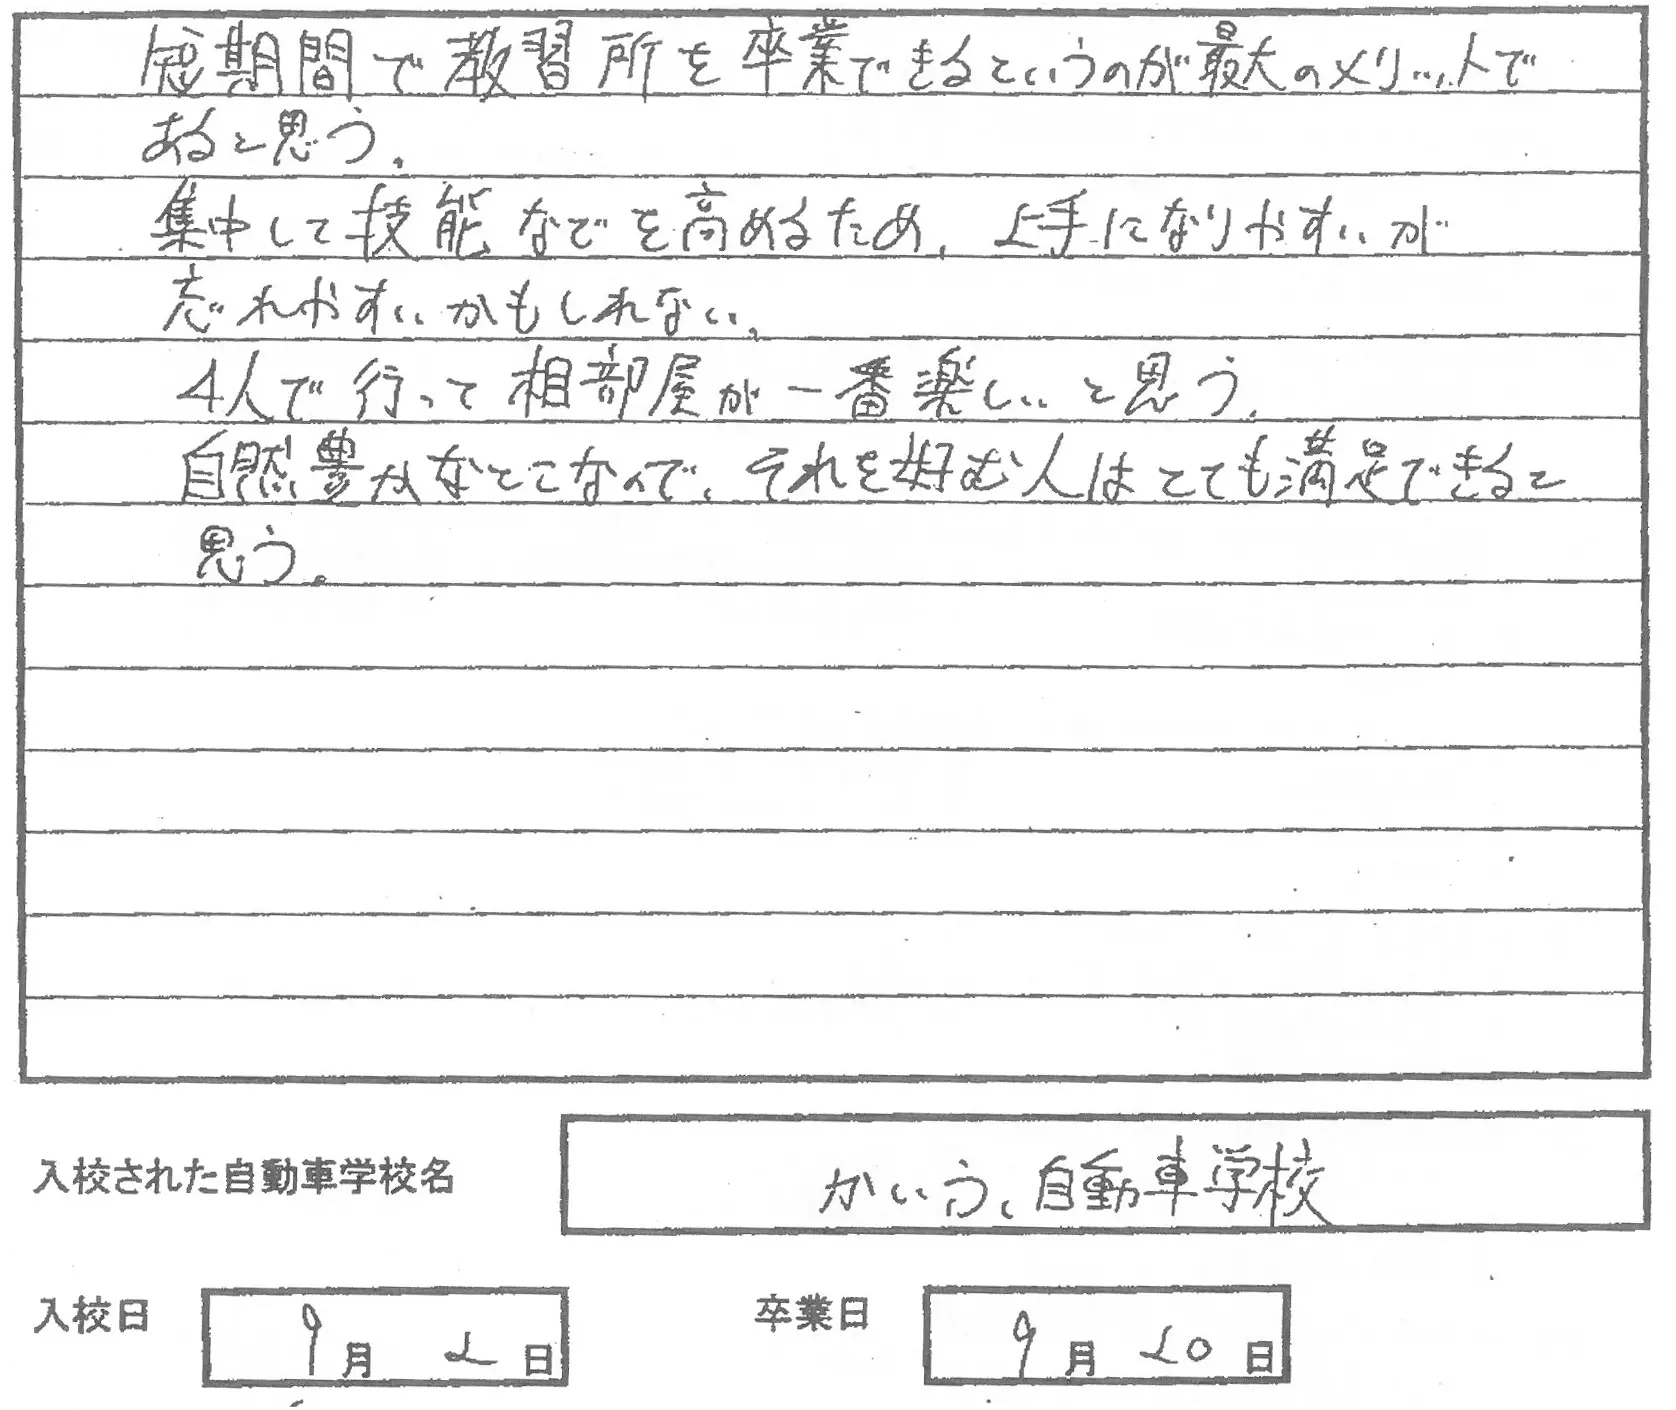 短期間で教習所を卒業できるというのが最大のメリットで
あると思う。
集中して技能などを高めるため、上手になりやすいが
忘れやすいかもしれない。
4人で行って相部屋が一番楽しいと思う。
自然豊かなとこなんで、それを好む人はとても満足できると
思う。
入校された自動車学校名
かいう、自動車学校
入校日 9月 2日 卒業日 9月 20日